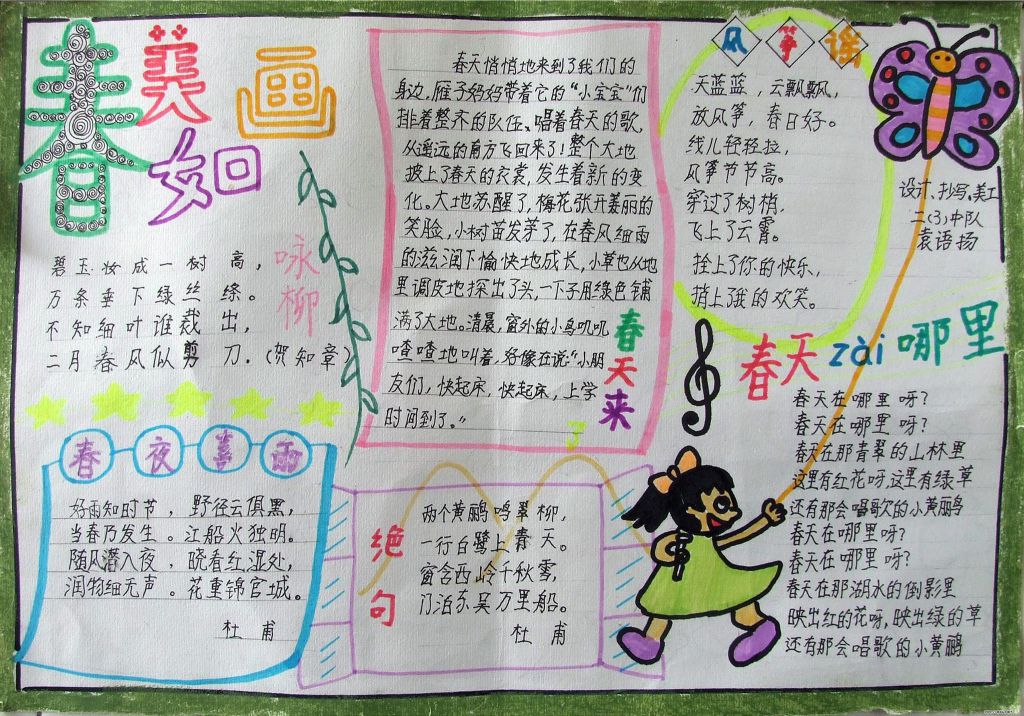 春美如画
咏柳
碧玉妆成一树高，
万条垂下绿丝绦。
不知细叶谁裁出，
二月春风似剪刀。(贺知章)
春夜喜雨
好雨知时节，野径云俱黑，
当春乃发生。江船火独明。
随风潜入夜，晓看红湿处，
润物细无声。花重锦官城。
杜甫
春天悄悄地来到了我们的
身边，雁子妈妈带着它的“小宝宝”们
排着整齐的队伍、唱着春天的歌，
从遥远的南方飞回来了！整个大地
披上了春天的衣裳，发生着新的变
化。大地苏醒了，梅花张开美丽的
笑脸，小树苗发芽了，在春风细雨
的滋润下愉快地成长，小草也从地
里调皮地探出了头，一下子用绿色铺
满了大地。清晨，窗外的小鸟叽叽
喳喳地叫着，好像在说“小朋
友们，快起床，快起床，上学
时间到了。”
春天来了
绝句
两个黄鹂鸣翠柳，
一行白鹭上青天。
窗含西岭千秋雪，
门泊东吴万里船。
杜甫
风筝谣
天蓝蓝，云飘飘，
放风筝，春日好。
线儿轻轻拉，
风筝节节高。
穿过了树梢，
飞上了云霄。
拴上了你的快乐，
捎上了我的欢笑。
设计、抄写、美工
二(3)中队
袁语扬
春天zài哪里
春天在哪里呀？
春天在哪里呀？
春天在那青翠的山林里
这里有红花呀，这里有绿草
还有那会唱歌的小黄鹂
春天在哪里呀？
春天在哪里呀？
春天在那湖水的倒影里
映出红的花呀，映出绿的草
还有那会唱歌的小黄鹂